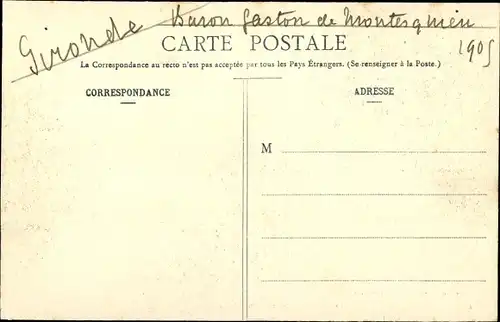 Gironde
Baron Gaston de Montesquieu
1905
CARTE POSTALE
La Correspondance au recto n'est pas acceptée par tous les Pays Étrangers. (Se renseigner à la Poste.)
CORRESPONDANCE
ADRESSE
M